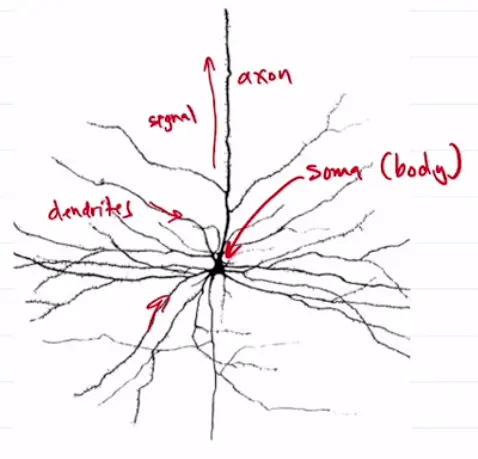 axon
segnal
soma (body)
dendrites